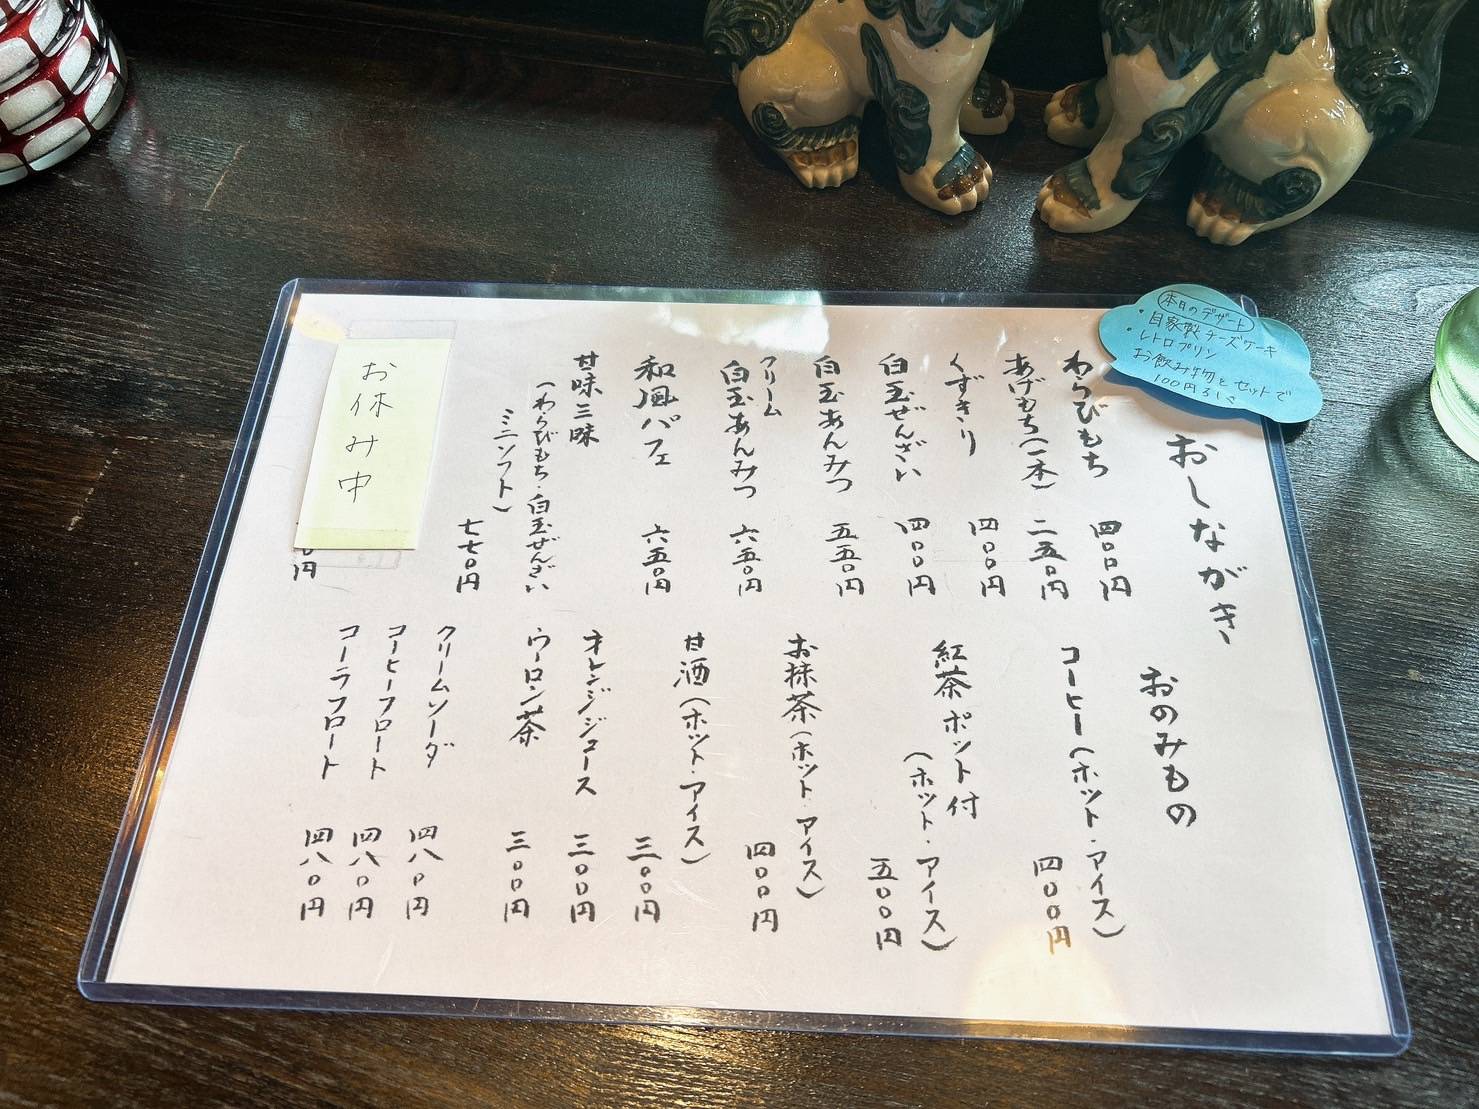 本日のデザート
・自家製チーズケーキ
・レトロプリン
お飲み物とセットで
100円引き
おしながき
わらびもち 四〇〇円
あげもち(一本) 二五〇円
くずきり 四〇〇円
白玉ぜんざい 四〇〇円
白玉あんみつ 五五〇円
クリーム
白玉あんみつ 六五〇円
和風パフェ 六五〇円
甘味三昧
(わらびもち・白玉ぜんざい
ミニソフト)
七七〇円
お休み中
〇円
おのみもの
コーヒー(ホット・アイス)
四〇〇円
紅茶ポット付
(ホット・アイス)
五〇〇円
お抹茶(ホット・アイス)
四〇〇円
甘酒(ホット・アイス)
三〇〇円
オレンジジュース 三〇〇円
ウーロン茶 三〇〇円
クリームソーダ 四八〇円
コーヒーフロート 四八〇円
コーラフロート 四八〇円